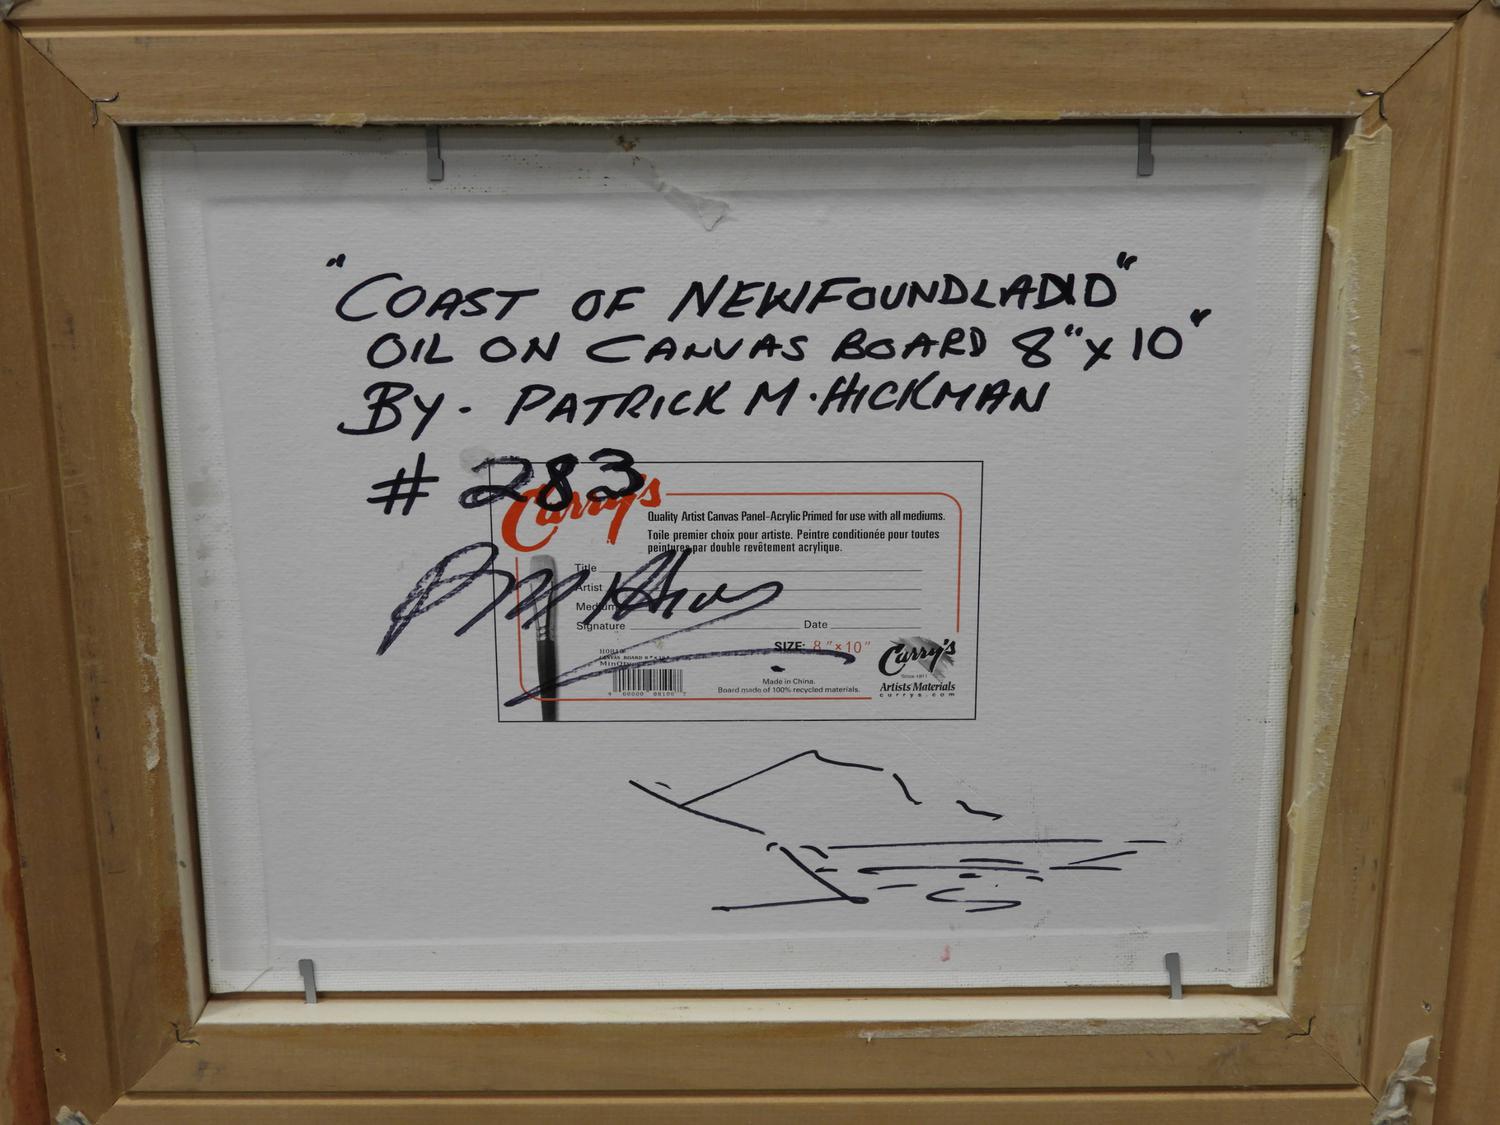 "COAST OF NEWFOUNDLADID"
OIL ON CANVAS BOARD 8"X10"
BY- PATRICK M. HICKMAN
# 283
Curry's
Quality Artist Canvas Panel-Acrylic Primed for use with all mediums.
Toile premier choix pour artiste. Peintre conditionée pour toutes
peintures par double revêtement acrylique.
Title
Artist
Medium
Signature Date
SIZE: 8"x10"
CANVAS BOARD 8"X10"
Made in China.
Board made of 100% recycled materials.
Curry's
Since 1911
Artists Materials
currys.com